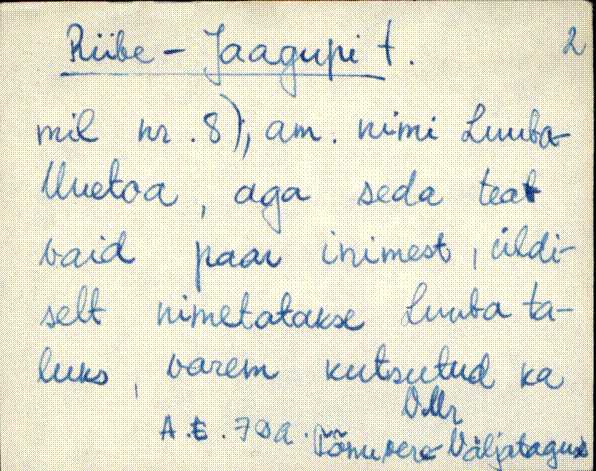 Riibe-Jaagupi t. 2
mil nr. 8), am. nimi Luuba-
Uuetoa, aga seda teab
vaid paar inimest, üldi-
selt nimetatakse Luuba ta-
luks, varem kutsutud ka
VMr
A.E. 70a. Põnu vere Väljataguse